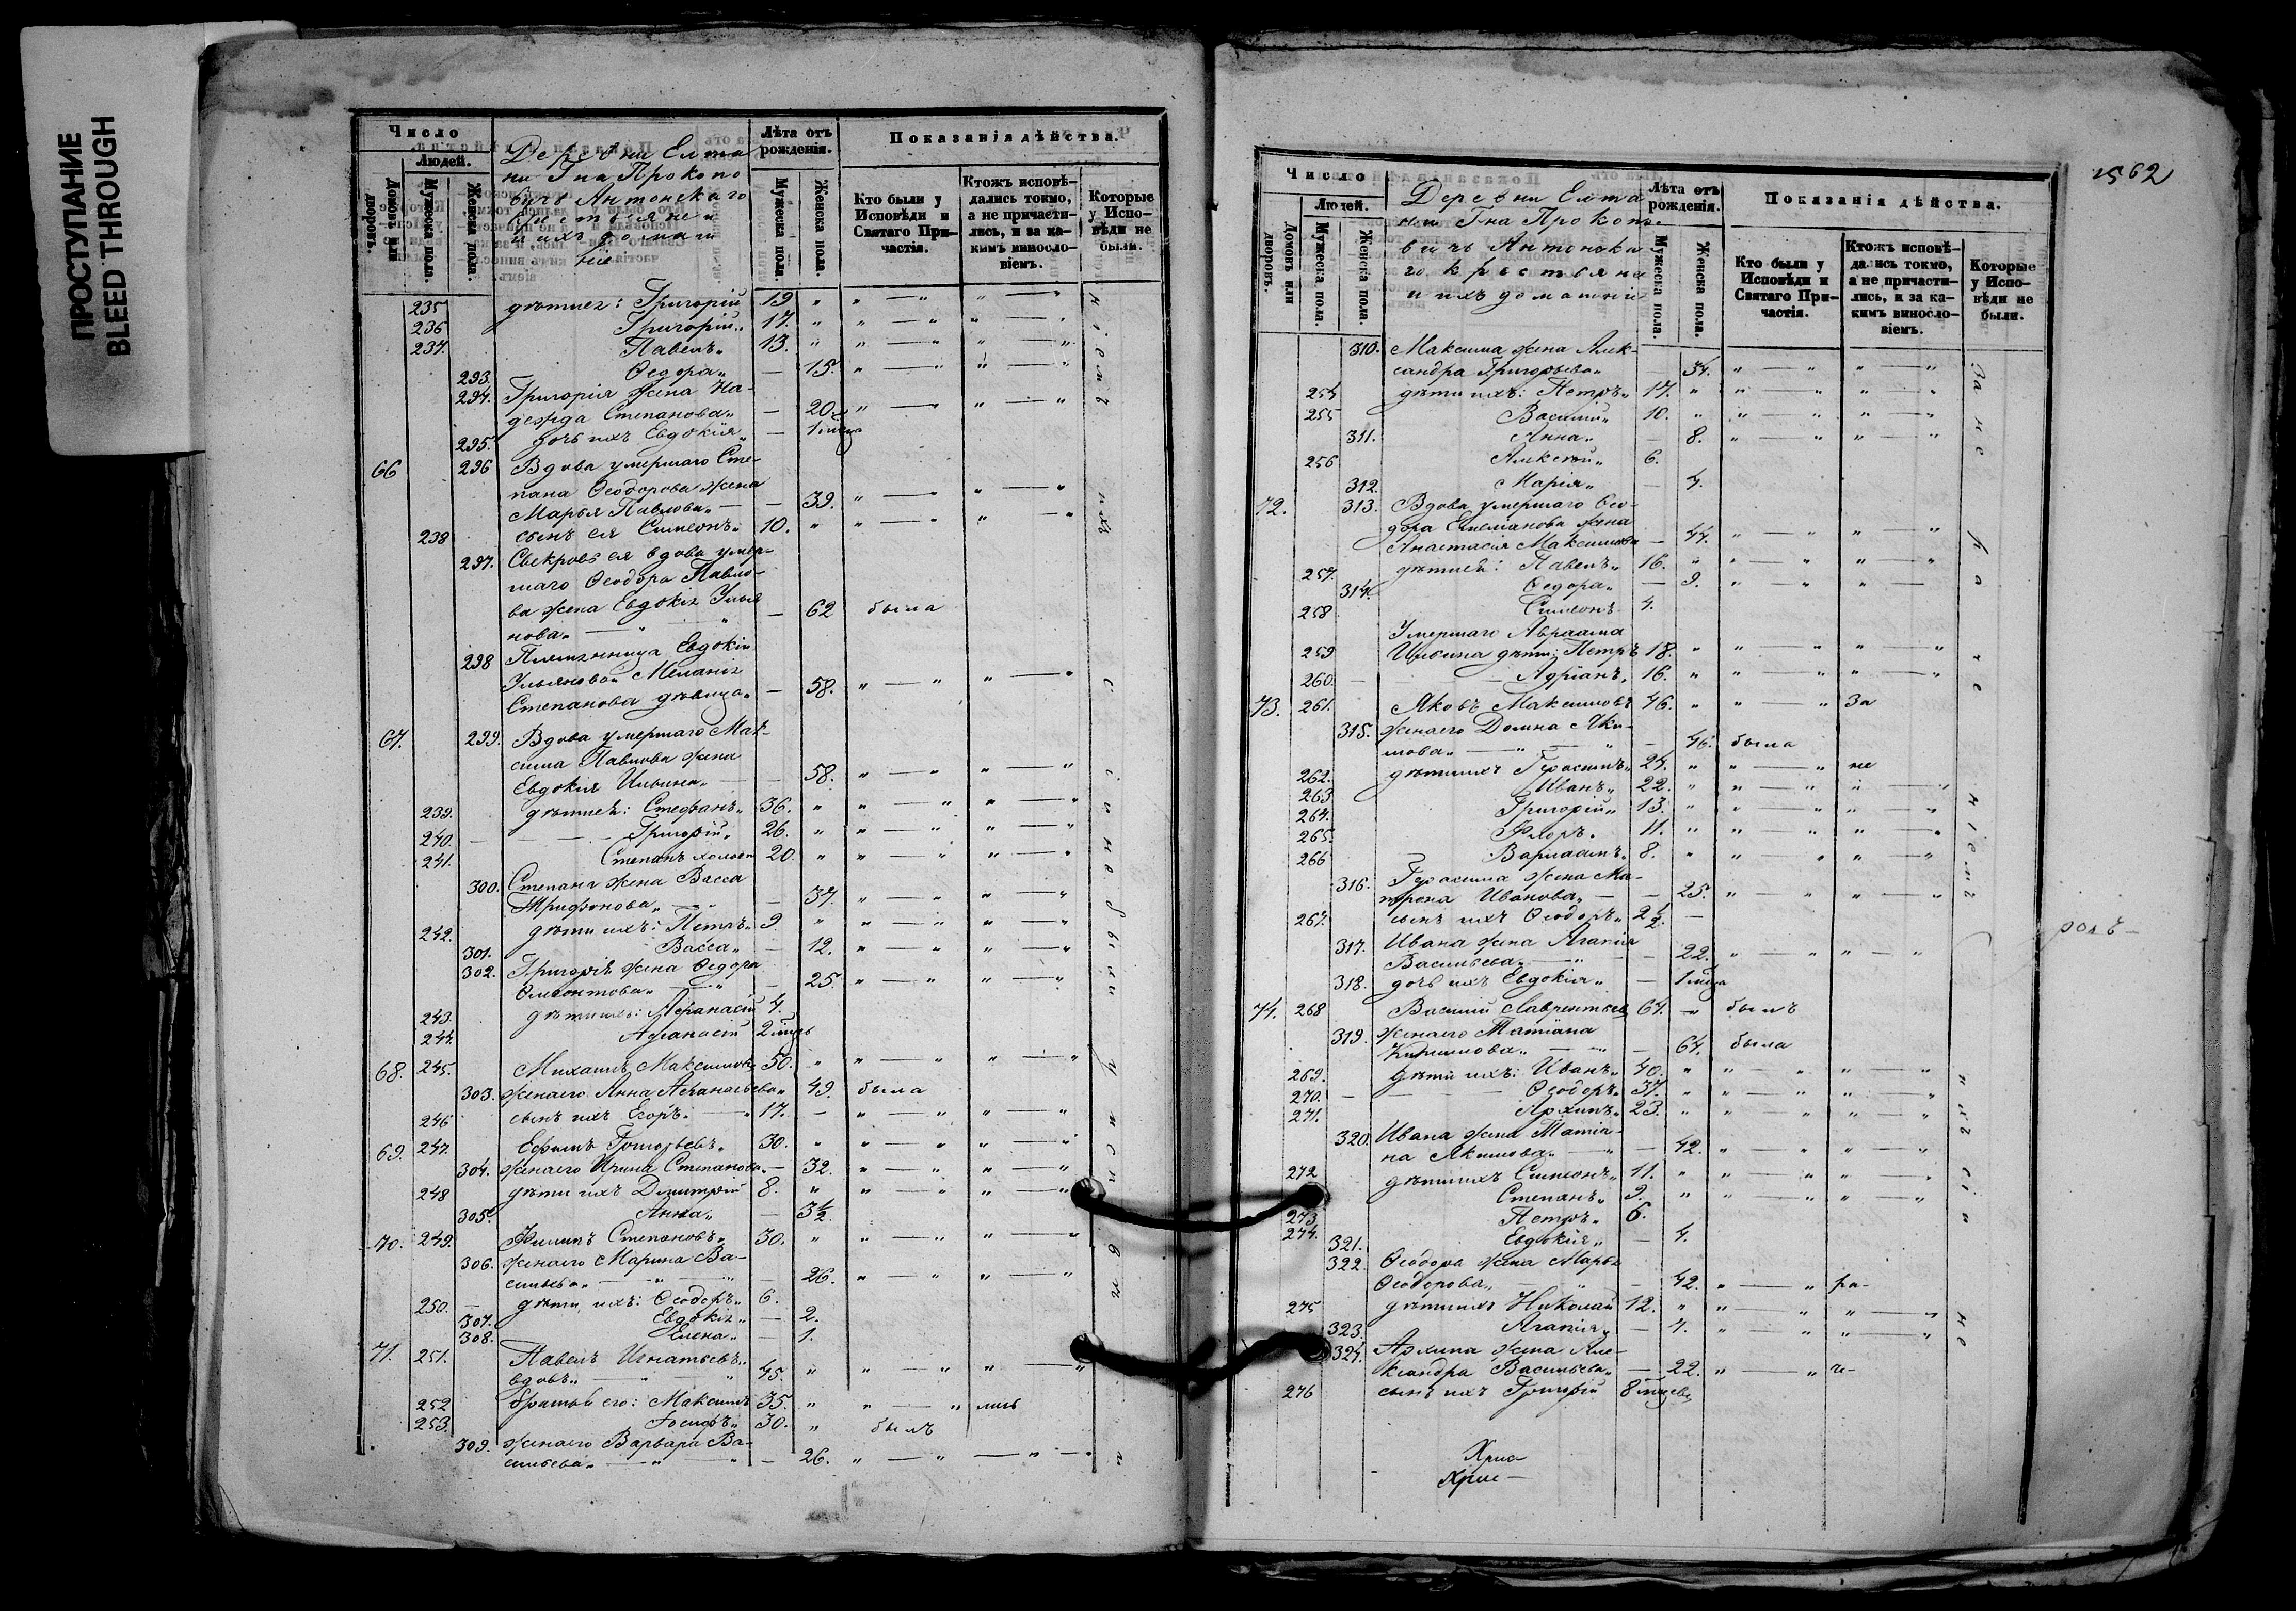 ПРОСТУПАНИЕ
BLEED THROUGH
Число
Людей.
Домовъ или дворовъ.
Мужеска пола.
Женска пола.
Деревни Елма
ни Гна Прокопо
вичъ Антонскаго
Крестьяне и
ихъ домаш
ніе
Лѣта отъ рожденія.
Мужеска пола.
Женска пола.
Показанія дѣйства.
Кто были у Исповѣди и Святаго Причастія.
Ктожъ исповѣдались токмо, а не причастились, и за какимъ винословіемъ.
Которые у Исповѣди не были.
235 дѣти ея: Григорій 19 " " — " " — "
236 Григорій " 17. " " — " " — "
237. Павелъ " 13. " " — " " — "
293. Ѳедора " — 15. " — " " — "
294. Григорія жена На-
дежда Степанова " — 20 " — " " — "
295. дочь ихъ Евдокія " — 1 мѣсяца
66 296 Вдова умершаго Сте-
пана Ѳеодорова жена
Марья Павлова " — — 39. " — " " — "
238 сынъ ея Симеонъ " 10. " " — " " — "
297. Свекровь ея вдова умер-
шаго Ѳеодора Павло-
ва жена Евдокія Улья
нова " — " — 62 была
298 Племянница Евдокіи
Ульяновой Меланія
Степанова дѣвица " — 58. " — " " — "
67. 299. Вдова умершаго Мак-
сима Павлова жена
Евдокія Ильина " — — 58. " — " " — "
239. дѣти ея: Стефанъ " 36. " " — " " — "
240. — — — Григорій " 26. " " — " " — "
241. Степанъ холост 20. " " — " " — "
300. Степана жена Васса
Трифонова " — — 37. " — " " — "
242. дѣти ихъ: Петръ " 9. " " — " " — "
301. Васса " — 12. " — " " — "
302. Григорія жена Ѳедора
Ѳлеонтова " — " — 25. " — " " — "
243. дѣти ихъ: Аѳанасій 4.
244. Аѳанасій 2 мѣсяц
68. 245. Михаилъ Максимовъ 50. " " — " " — "
303. жена его Анна Аѳанасьева " 49. была
246 сынъ ихъ Егоръ " — " 17. — " — " " — "
69. 247. Ефимъ Григорьевъ " 30. " " — " " — "
304. жена его Ирина Степанова " — 32. " — " " — "
248 дѣти ихъ Димитрій 8. " " — " " — "
305. Анна " — 3½
70. 249. Филипъ Степановъ " 30. " " — " " — "
306. жена его Марина Ва-
сильева " — " — 26. " — " " — "
250. — дѣти ихъ: Ѳеодоръ " 6.
307. Евдокія " — 2.
308. Елена " — 1.
71. 251. Павелъ Игнатьевъ "
вдовъ " — " 45. " " — " " — "
252 братья его: Максимъ 35. " " — " лись
253. Іосифъ " 30. " былъ
309. жена его Варвара Ва-
сильева " — " — 26. " — " — " —
ніемъ ихъ
2562
Число
Людей.
Домовъ или дворовъ.
Мужеска пола.
Женска пола.
Деревни Елма
ни Гна Прокопо
вичъ Антонска
го, Крестьяне
и ихъ домашніе
Лѣта отъ рожденія.
Мужеска пола.
Женска пола.
Показанія дѣйства.
Кто были у Исповѣди и Святаго Причастія.
Ктожъ исповѣдались токмо, а не причастились, и за какимъ винословіемъ.
Которые у Исповѣди не были.
310. Максима жена Алек-
сандра Григорьева " — 34. " — " " — "
254 дѣти ихъ: Петръ " 17. " " — " " — "
255 Василій " 10. " " — " " — "
311. Анна " — 8. " — " " — "
256 Алексѣй " 6.
312. Марія " — 4.
72. 313. Вдова умершаго Ѳео-
дора Емеліанова жена
Анастасія Максимова — 44. " — " " "
257. дѣти ея: Павелъ " 16. " " — " " — "
314. Ѳедора " — 9. " — " " —
258 Симеонъ 4.
Умершаго Авраама
259 Ильина дѣти: Петръ 18. " " — " " — "
260. — — Адріанъ " 16. " " — " " — "
73. 261. Яковъ Максимовъ 46. " " — " За
315. жена его Домна Яки-
мова " — " — " — 46. была
262. дѣти ихъ Герасимъ " 24. " " — " не
263 Иванъ " 22. " " — " " — "
264. Григорій " 13. " " — " " — "
265. Флоръ " 11. " " — " " — "
266 Варлаамъ " 8. " " — " " — "
316. Герасима жена Ма-
трена Иванова " — — 25. " — " " — "
267. сынъ ихъ Ѳеодоръ " 2½. —
317. Ивана жена Агапія
Васильева " — " — 22. " — " " — "
318. дочь ихъ Евдокія " — 1 мѣсяца
74. 268 Василій Лаврентьев 67. " былъ
319. жена его Татіана
Кирилова " — " — 64. была
269. дѣти ихъ: Иванъ " 40. " " — " " — "
270. — — Ѳеодоръ " 37. " " — " " — "
271. Архипъ " 23. " " — " " — "
320. Ивана жена Татіа-
на Акимова " — " — 42. " — " " — "
272 дѣти ихъ Симеонъ " 11. " " — " " — "
Степанъ " 9. " " — " " — "
273. Петръ " 6.
274. 321. Евдокія " — 4.
322. Ѳеодора жена Марья
Ѳеодорова " — " — 42. " — " ра-
275 дѣти ихъ Николай 12. " " — " " — "
323. Агапія " — 7. " — " " — "
324. Архипа жена Але-
ксандра Васильева " — 22. " — " че-
276 сынъ ихъ Григорій 8 мѣсяцев
Хрис
Хрис —
За не раченіемъ
ролъ —